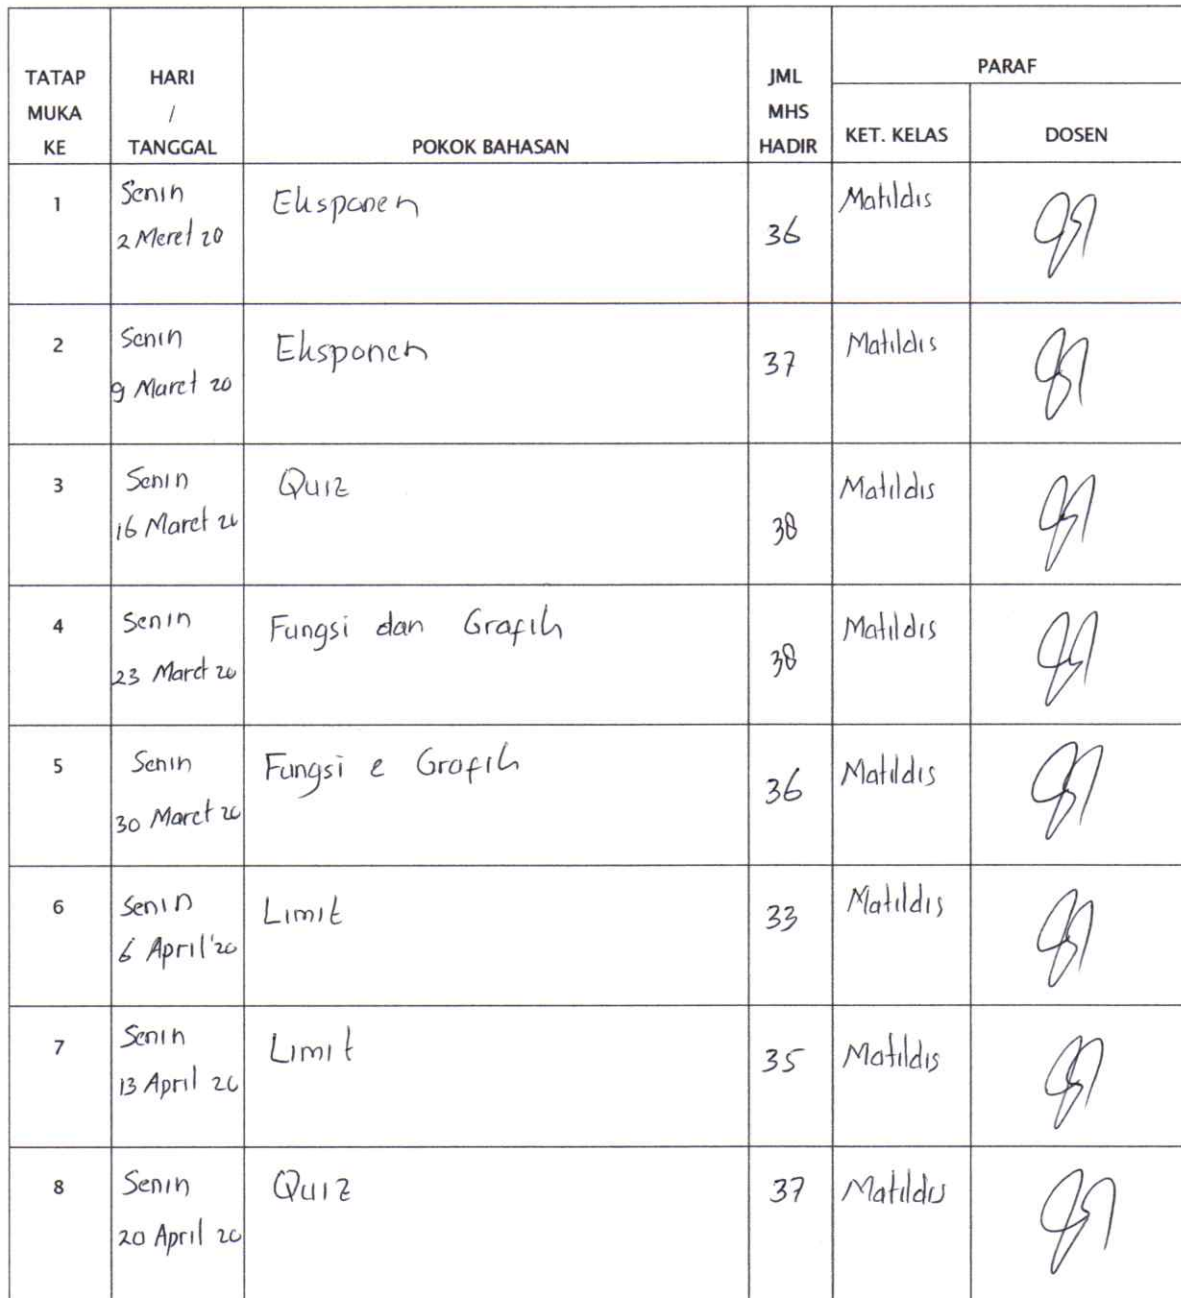 TATAP MUKA KE HARI / TANGGAL POKOK BAHASAN JML MHS HADIR PARAF
KET. KELAS DOSEN
1 Senin 2 Meret 20 Eksponen 36 Matildis
2 Senin 9 Maret 20 Eksponen 37 Matildis
3 Senin 16 Maret 20 Quiz 38 Matildis
4 Senin 23 Maret 20 Fungsi dan Grafik 38 Matildis
5 Senin 30 Maret 20 Fungsi e Grafik 36 Matildis
6 Senin 6 April '20 Limit 33 Matildis
7 Senin 13 April 20 Limit 35 Matildis
8 Senin 20 April 20 Quiz 37 Matildis